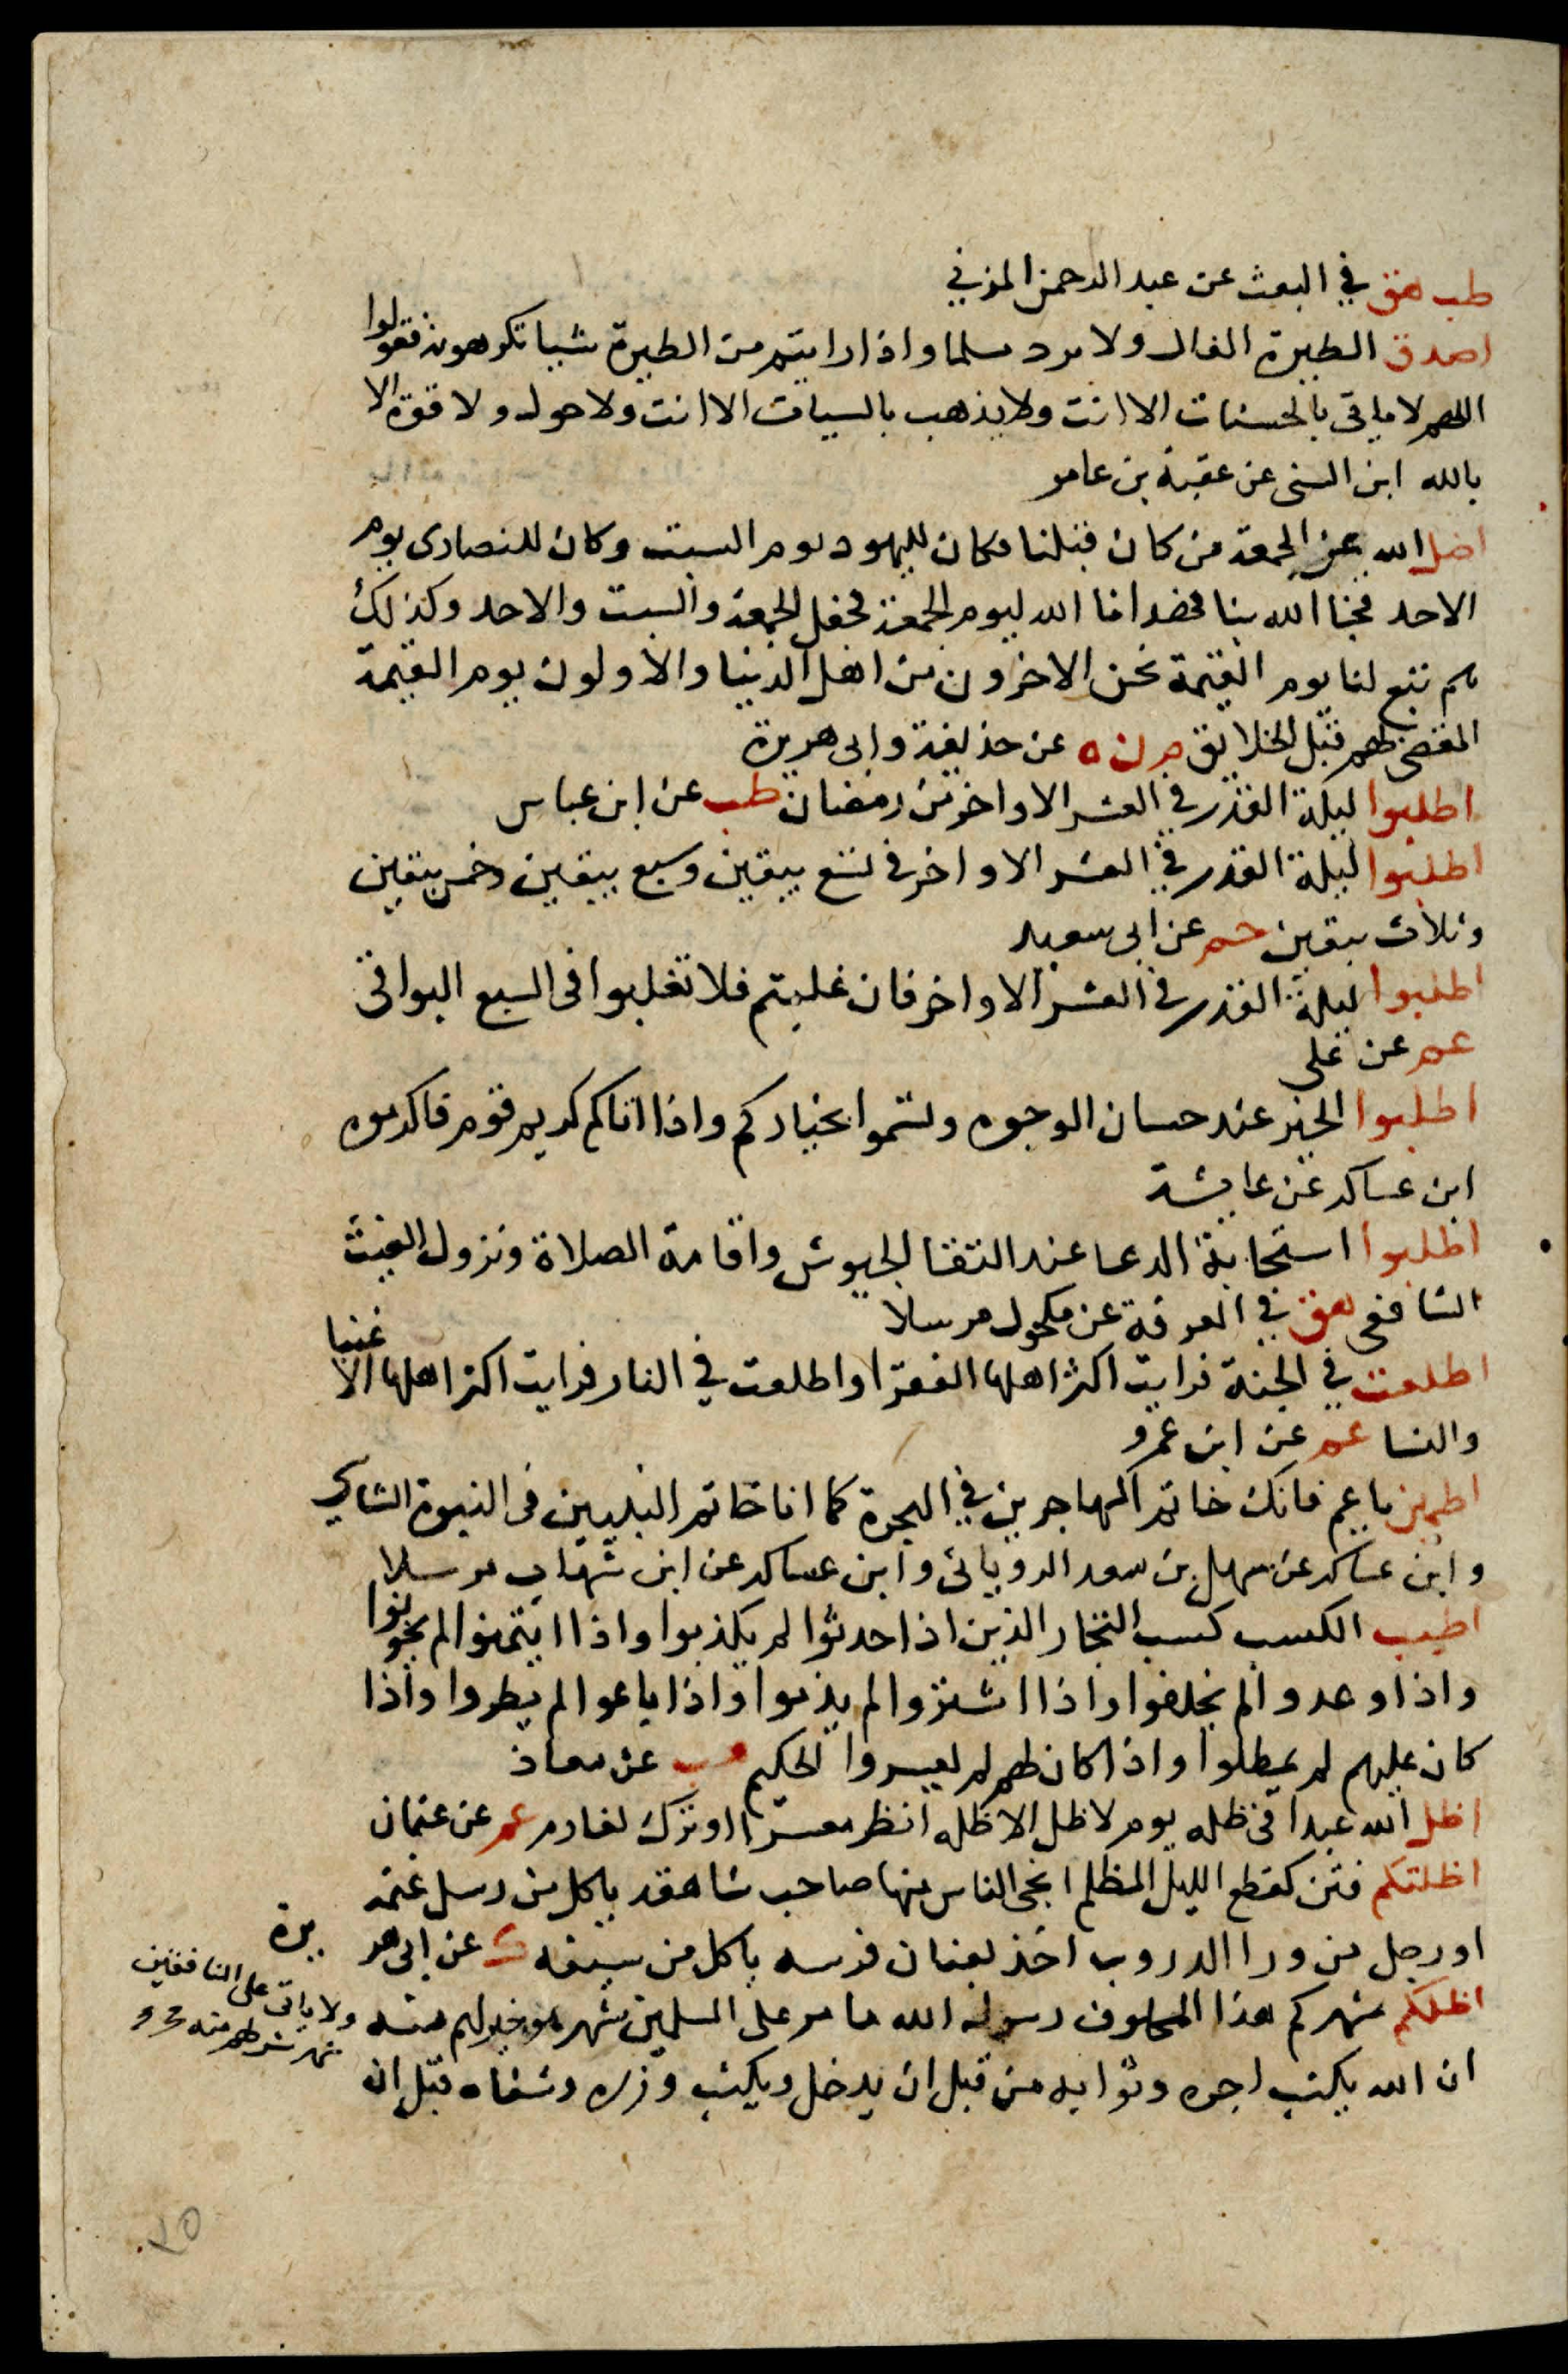 طب هق في البعث عن عبد الرحمن المزني
اصدق الطيرة الفال ولا يرد مسلما واذا رايتم من الطيرة شيا تكرهونه فقولوا
اللهم لا ياتي بالحسنات الا انت ولا يذهب بالسيات الا انت ولا حول ولا قوة الا
بالله ابن السني عن عقبة بن عامر
اضل الله عن الجمعة من كان قبلنا فكان لليهود يوم السبت وكان للنصارى يوم
الاحد فجا الله بنا فهدانا الله ليوم الجمعة فجعل الجمعة والسبت والاحد وكذلك
هم تبع لنا يوم القيمة نحن الاخرون من اهل الدنيا والاولون يوم القيمة
المقضى لهم قبل الخلايق م ن ه عن حذيفة وابى هريرة
اطلبوا ليلة القدر في العشر الاواخر من رمضان طب عن ابن عباس
اطلبوا ليلة القدر في العشر الاواخر في تسع يبقين وسبع يبقين وخمس يبقين
وثلاث يبقين حم عن ابى سعيد
اطلبوا ليلة القدر في العشر الاواخر فان غلبتم فلا تغلبوا فى السبع البواقى
عم عن على
اطلبوا الخير عند حسان الوجوه وتسموا بخياركم واذا اتاكم كريم قوم فاكرموه
ابن عساكر عن عايشة
اطلبوا استجابة الدعا عند التقا الجيوش واقامة الصلاة ونزول الغيث
الشافعى هق في المعرفة عن مكحول مرسلا
اطلعت في الجنة فرايت اكثر اهلها الفقرا واطلعت في النار فرايت اكثر اهلها الاغنيا
والنسا عم عن ابن عمرو
اطمئن يا عم فانك خاتم المهاجرين في الهجرة كما انا خاتم النبيين فى النبوة الشاشي
وابن عساكر عن سهل بن سعد الرويانى وابن عساكر عن ابن شهاب مرسلا
اطيب الكسب كسب التجار الذين اذا حدثوا لم يكذبوا واذا ايتمنوا لم يخونوا
واذا وعدوا لم يخلفوا واذا اشتروا لم يذموا واذا باعوا لم يطروا واذا
كان عليهم لم يمطلوا واذا كان لهم لم يعسروا الحكيم هب عن معاذ
اظل الله عبدا فى ظله يوم لا ظل الا ظله انظر معسرا او ترك لغارم عم عن عثمان
اظلتكم فتن كقطع الليل المظلم انجى الناس منها صاحب شاهقة ياكل من رسل غنمه
او رجل من ورا الدروب اخذ بعنان فرسه ياكل من سيفه ك عن ابى هريرة
اظلكم شهركم هذا المحلوف رسول الله ما مر على المسلمين شهر هو خير لهم منه
ولا ياتى على المنافقين
شهر شر لهم منه
ان الله يكتب اجره وثوابه من قبل ان يدخل ويكتب وزره وشقاه قبل ان